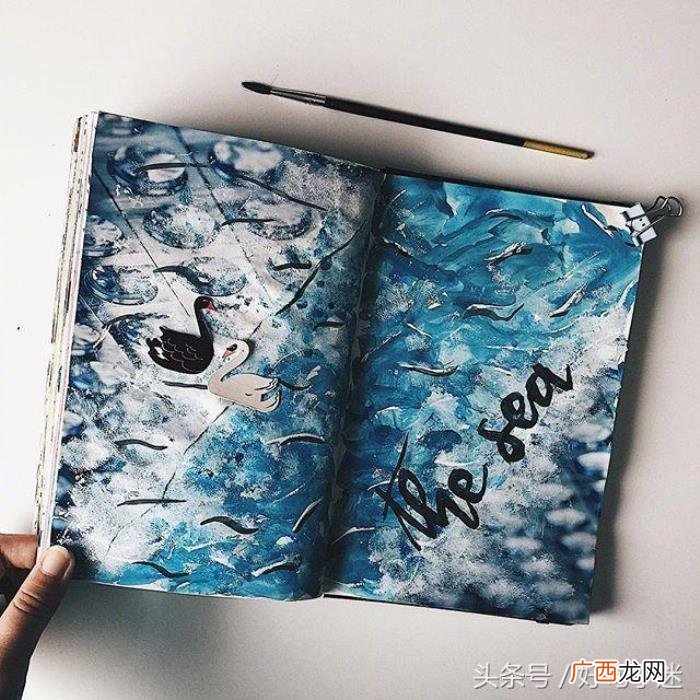 the sea
头条号 / 好
广西龙网
迷